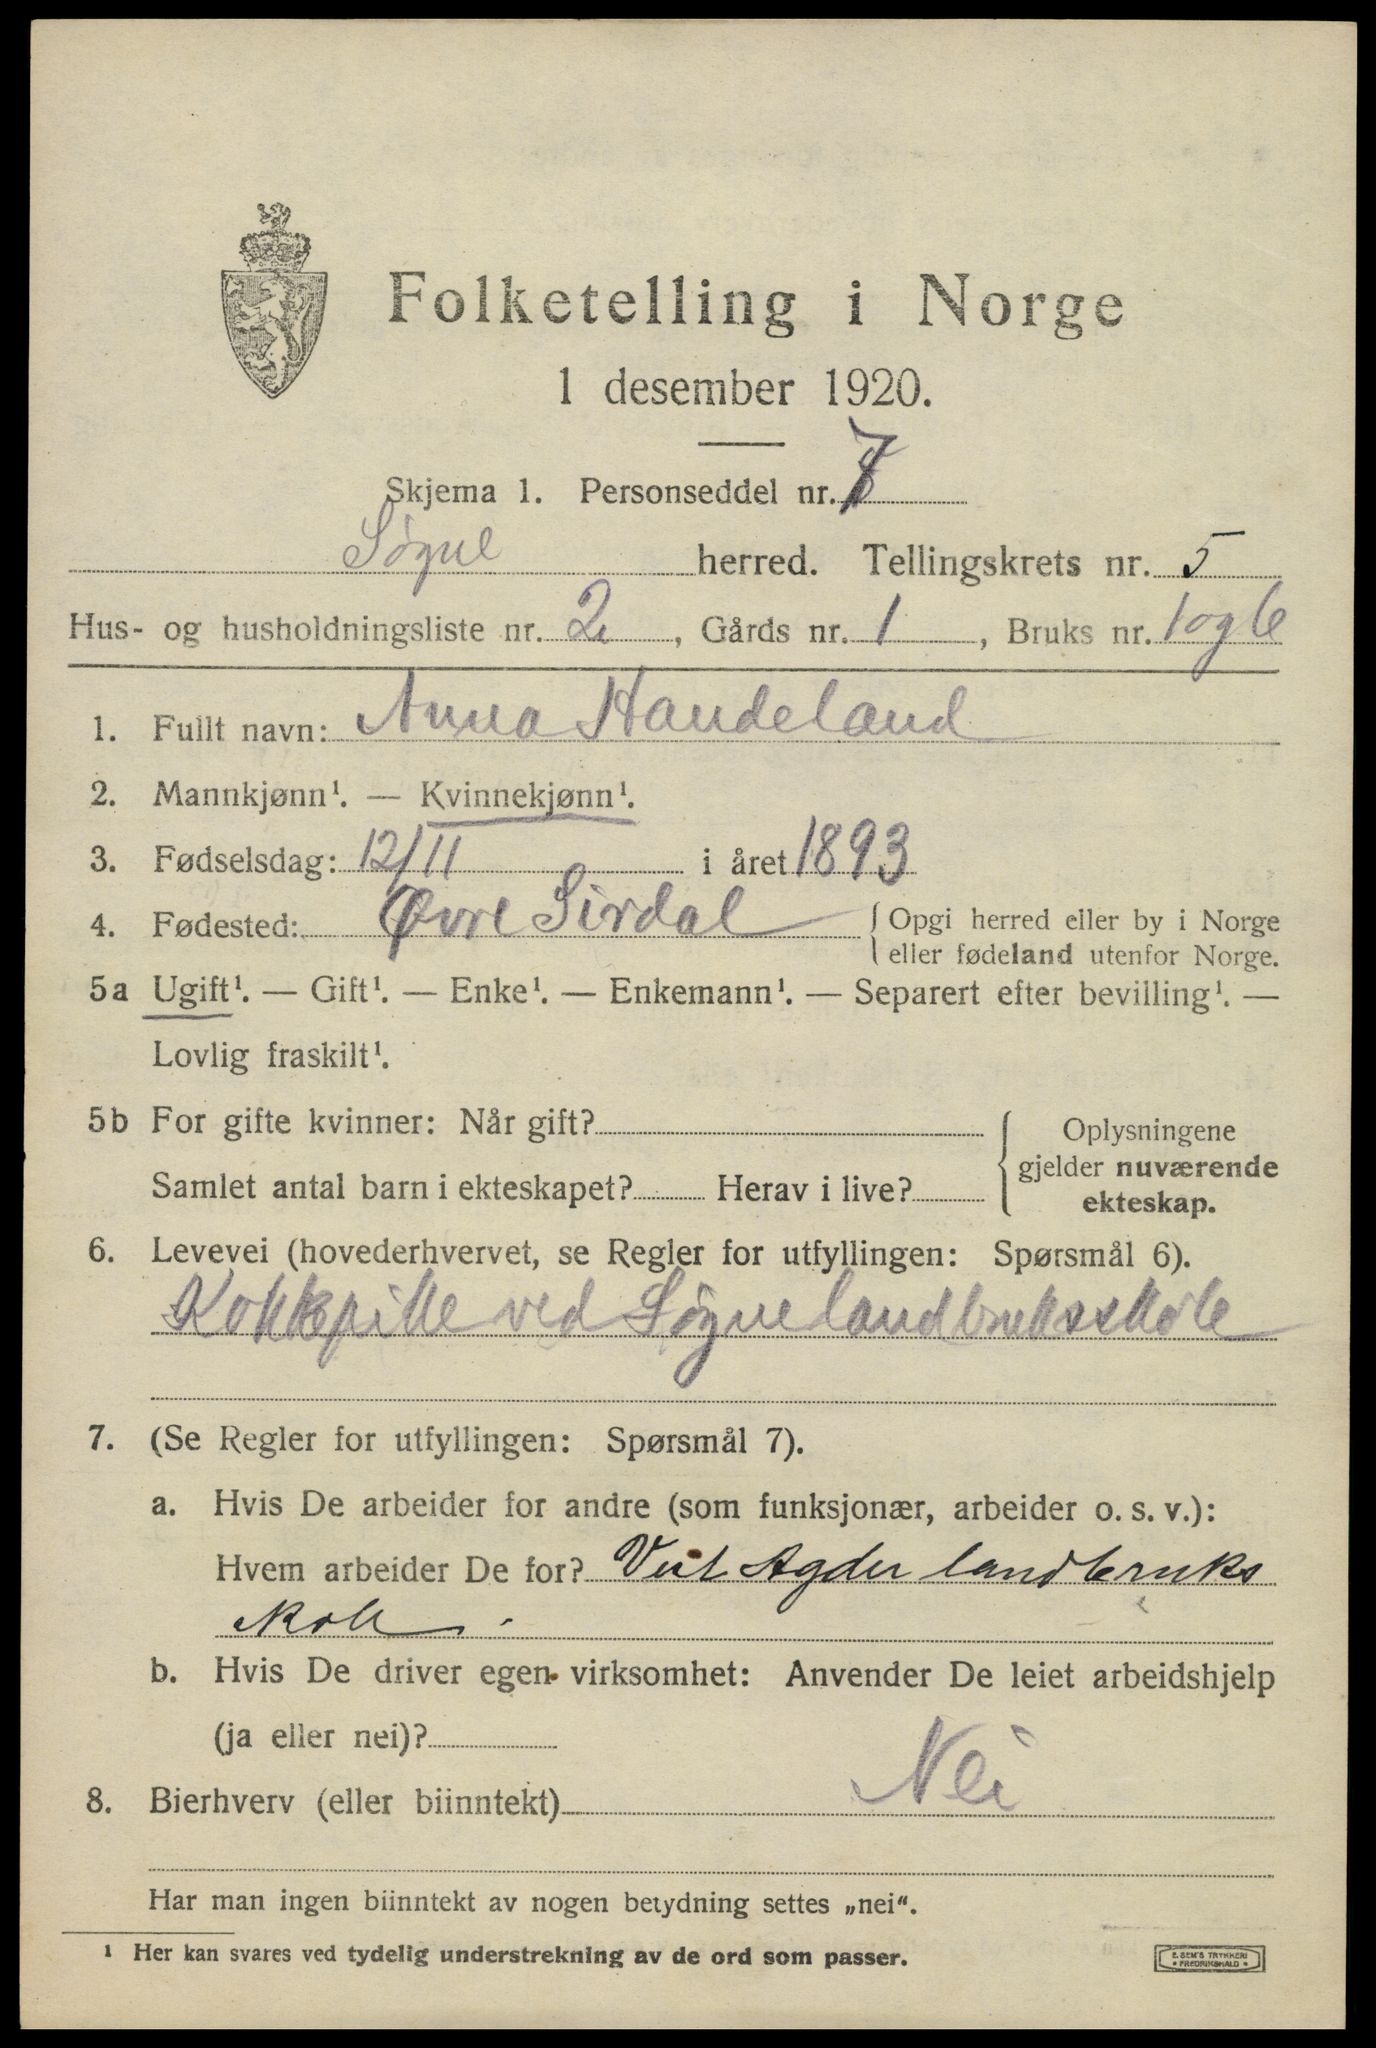 Folketelling i Norge
1 desember 1920.
Skjema 1. Personseddel nr. 7
Søgne herred. Tellingskrets nr. 5
Hus- og husholdningsliste nr. 2, Gårds nr. 1, Bruks nr. 1 og 6
1. Fullt navn: Anna Handeland
2. Mannkjønn¹. — Kvinnekjønn¹.
3. Fødselsdag: 12/11 i året 1893
4. Fødested: Øvre Sirdal { Opgi herred eller by i Norge
eller fødeland utenfor Norge.
5a Ugift¹. — Gift¹. — Enke¹. — Enkemann¹. — Separert efter bevilling¹. —
Lovlig fraskilt¹.
5b For gifte kvinner: Når gift?
Samlet antal barn i ekteskapet? Herav i live?
Oplysningene
gjelder nuværende
ekteskap.
6. Levevei (hovederhvervet, se Regler for utfyllingen: Spørsmål 6).
Kokkepike ved Søgne landbruksskole
7. (Se Regler for utfyllingen: Spørsmål 7).
a. Hvis De arbeider for andre (som funksjonær, arbeider o. s. v.):
Hvem arbeider De for? Vest Agder landbruks
skole.
b. Hvis De driver egen virksomhet: Anvender De leiet arbeidshjelp
(ja eller nei)?
8. Bierhverv (eller biinntekt) Nei
Har man ingen biinntekt av nogen betydning settes „nei“.
¹ Her kan svares ved tydelig understrekning av de ord som passer.
E. SEM'S TRYKKERI
• FREDRIKSHALD •